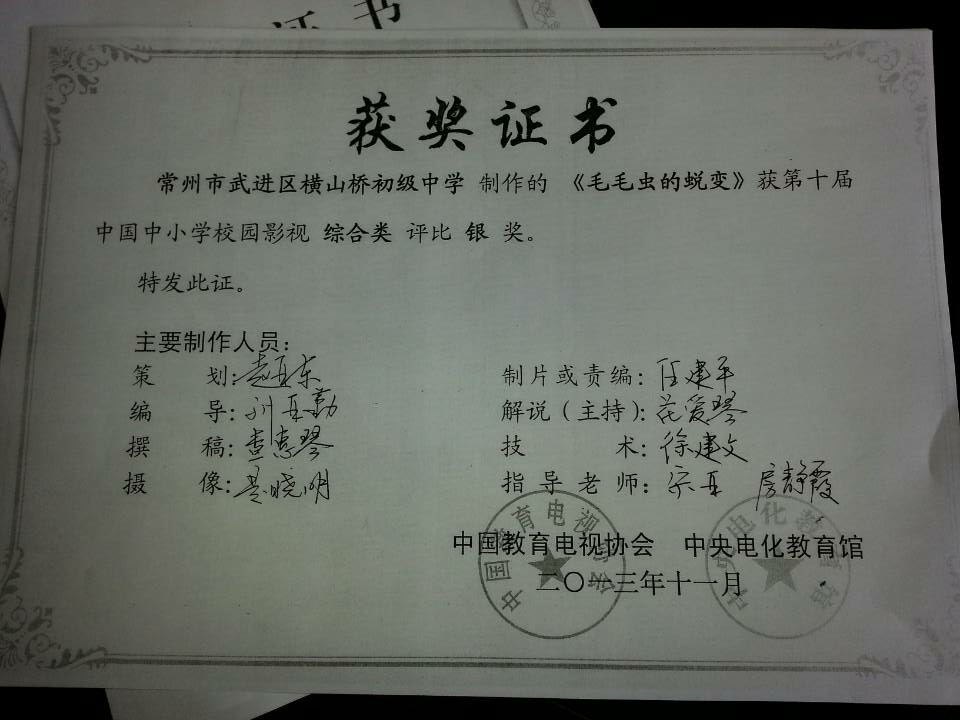 证书
获奖证书
常州市武进区横山桥初级中学 制作的 《毛毛虫的蜕变》获第十届
中国中小学校园影视 综合类 评比 银 奖。
特发此证。
主要制作人员：
策 划：
制片或责编：任建平
编 导：
解说（主持）：花爱琴
撰 稿：查惠琴
技 术：徐建文
摄 像：晓明
指导老师： 房静霞
中国教育电视协会 中央电化教育馆
二〇一三年十一月
中国教育电视协会
中央电化教育馆